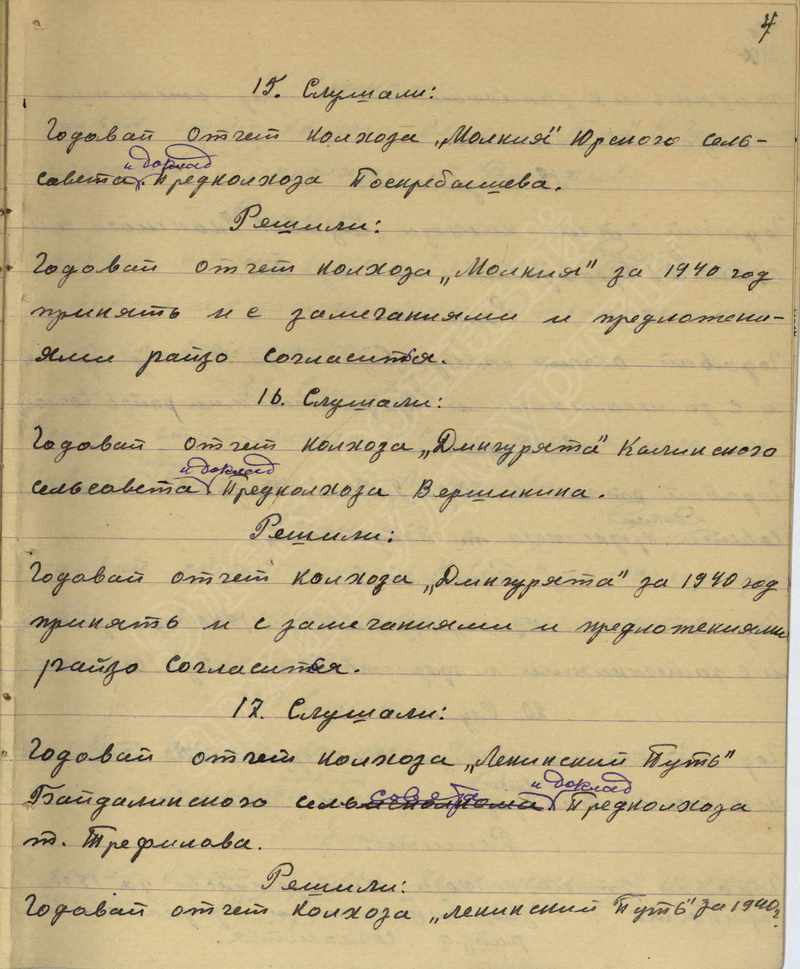 4
15. Слушали:
Годовай отчет колхоза „Молния" Юрского сель-
совета и доклад Предколхоза Поскребышева.
Решили:
Годовай отчет колхоза „Молния" за 1940 год
принять и с замечаниями и предложени-
ями райзо согласится.
16. Слушали:
Годовай отчет колхоза „Дингурята"
сельсовета и доклад Предколхоза Вершинина.
Решили:
Годовай отчет колхоза „Дингурята" за 1940 год
принять и с замечаниями и предложениями
райзо согласится.
17. Слушали:
Годовай отчет колхоза „Ленинский Путь"
Байдалинского сельсовета и доклад Предколхоза
т. Трефилова.
Решили:
Годовай отчет колхоза „Ленинский Путь" за 1940г.